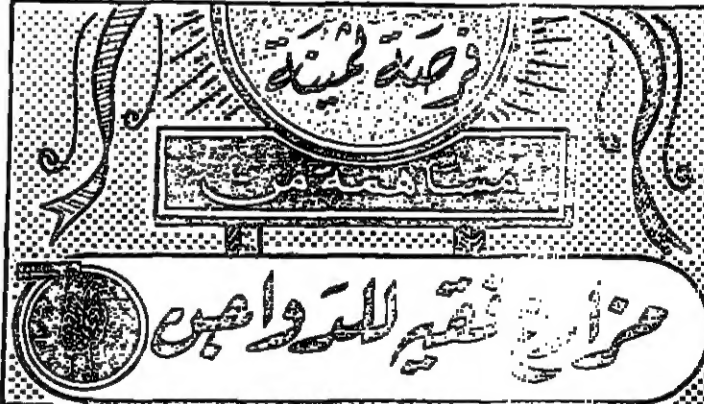 فرصة ثمينة
مساهمة من
مزارع فقيه للدواجن